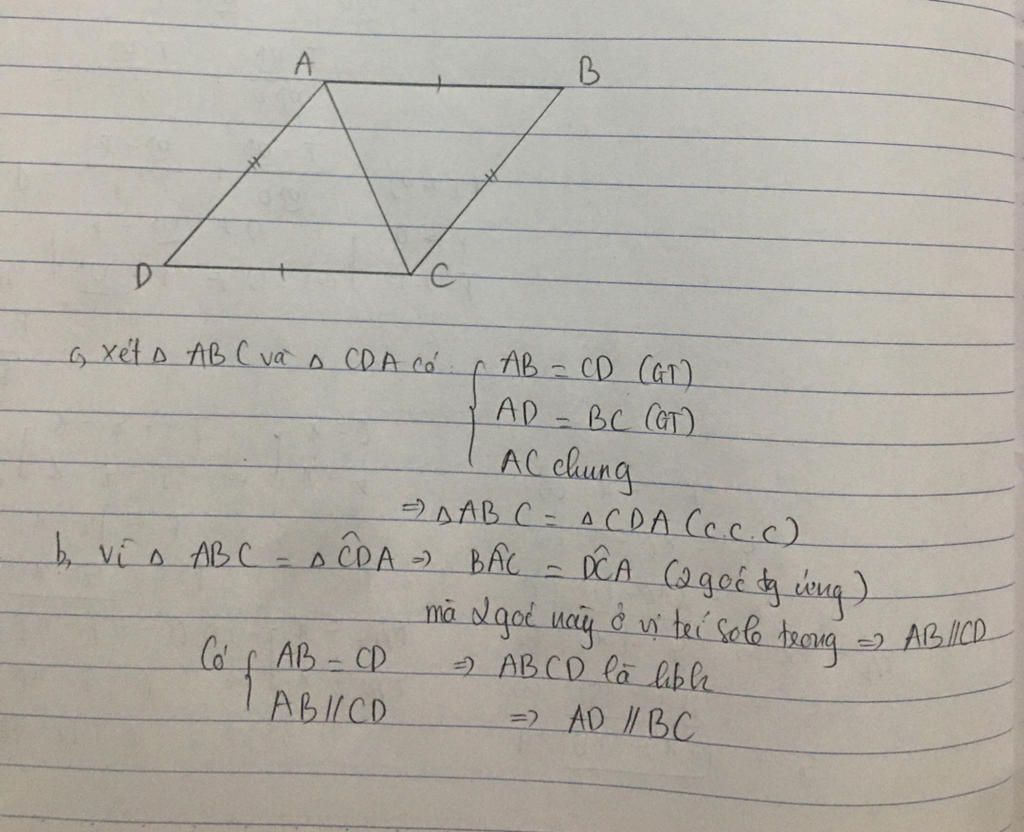 A B
D C
a, xét Δ ABC và Δ CDA có { AB = CD (GT)
AD = BC (GT)
AC chung
=> Δ ABC = Δ CDA (c.c.c)
b, vì Δ ABC = Δ CD̂A => BÂC = DĈA (2 góc tg ứng)
mà 2 góc này ở vị trí sole trong => AB//CD
Có { AB = CD => ABCD là hbh
AB//CD => AD // BC